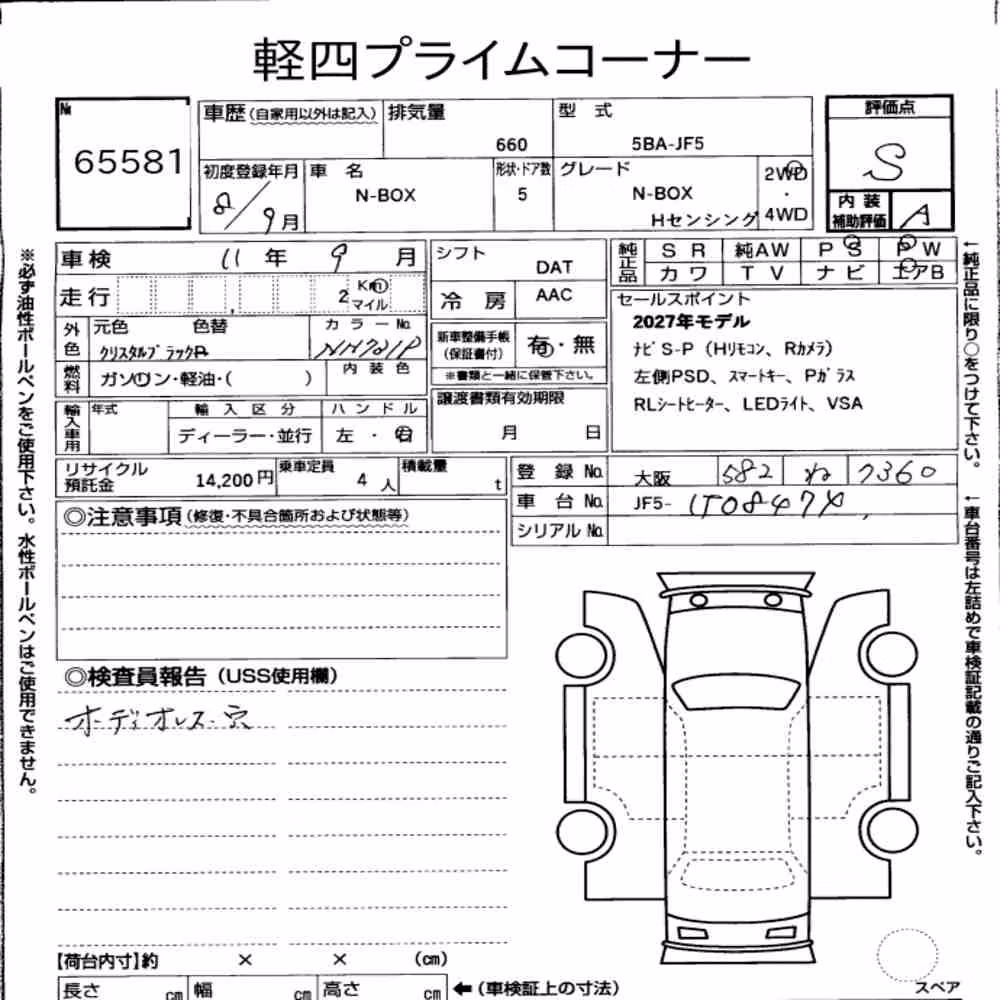 軽四プライムコーナー
№
65581
車歴(自家用以外は記入)
排気量
660
型 式
5BA-JF5
評価点
S
初度登録年月
8/9月
車 名
N-BOX
形状・ドア数
5
グレード
N-BOX
Hセンシング
2WD
・
4WD
内装
補助評価
A
車検
11年 9月
走行
2
Km
マイル
シフト
DAT
冷 房
AAC
純正品
S R
純AW
P S
P W
カ ワ
T V
ナ ビ
エアB
外色
元色
色替
クリスタルブラックP
カラーNo.
NH731P
内 装 色
燃料
ガソリン・軽油・( )
新車整備手帳
(保証書付)
有・無
※書類と一緒に保管下さい。
譲渡書類有効期限
月 日
セールスポイント
2027年モデル
ナビS-P(Hリモコン、Rカメラ)
左側PSD、スマートキー、Pガラス
RLシートヒーター、LEDライト、VSA
輸入車用
年式
輸 入 区 分
ディーラー・並行
ハ ン ド ル
左 ・ 右
リサイクル
預託金
14,200円
乗車定員
4人
積載量
t
登 録 No.
大阪
582
ね
7360
車 台 No.
JF5-
シリアル No.
◎注意事項(修復・不具合箇所および状態等)
◎検査員報告(USS使用欄)
オーディオレス・穴
【荷台内寸】約 × × (cm)
長さ cm
幅 cm
高さ cm
←(車検証上の寸法)
スペア
※必ず油性ボールペンをご使用下さい。水性ボールペンはご使用できません。
←純正品に限り○をつけて下さい。
←車台番号は左詰めで車検証記載の通りご記入下さい。